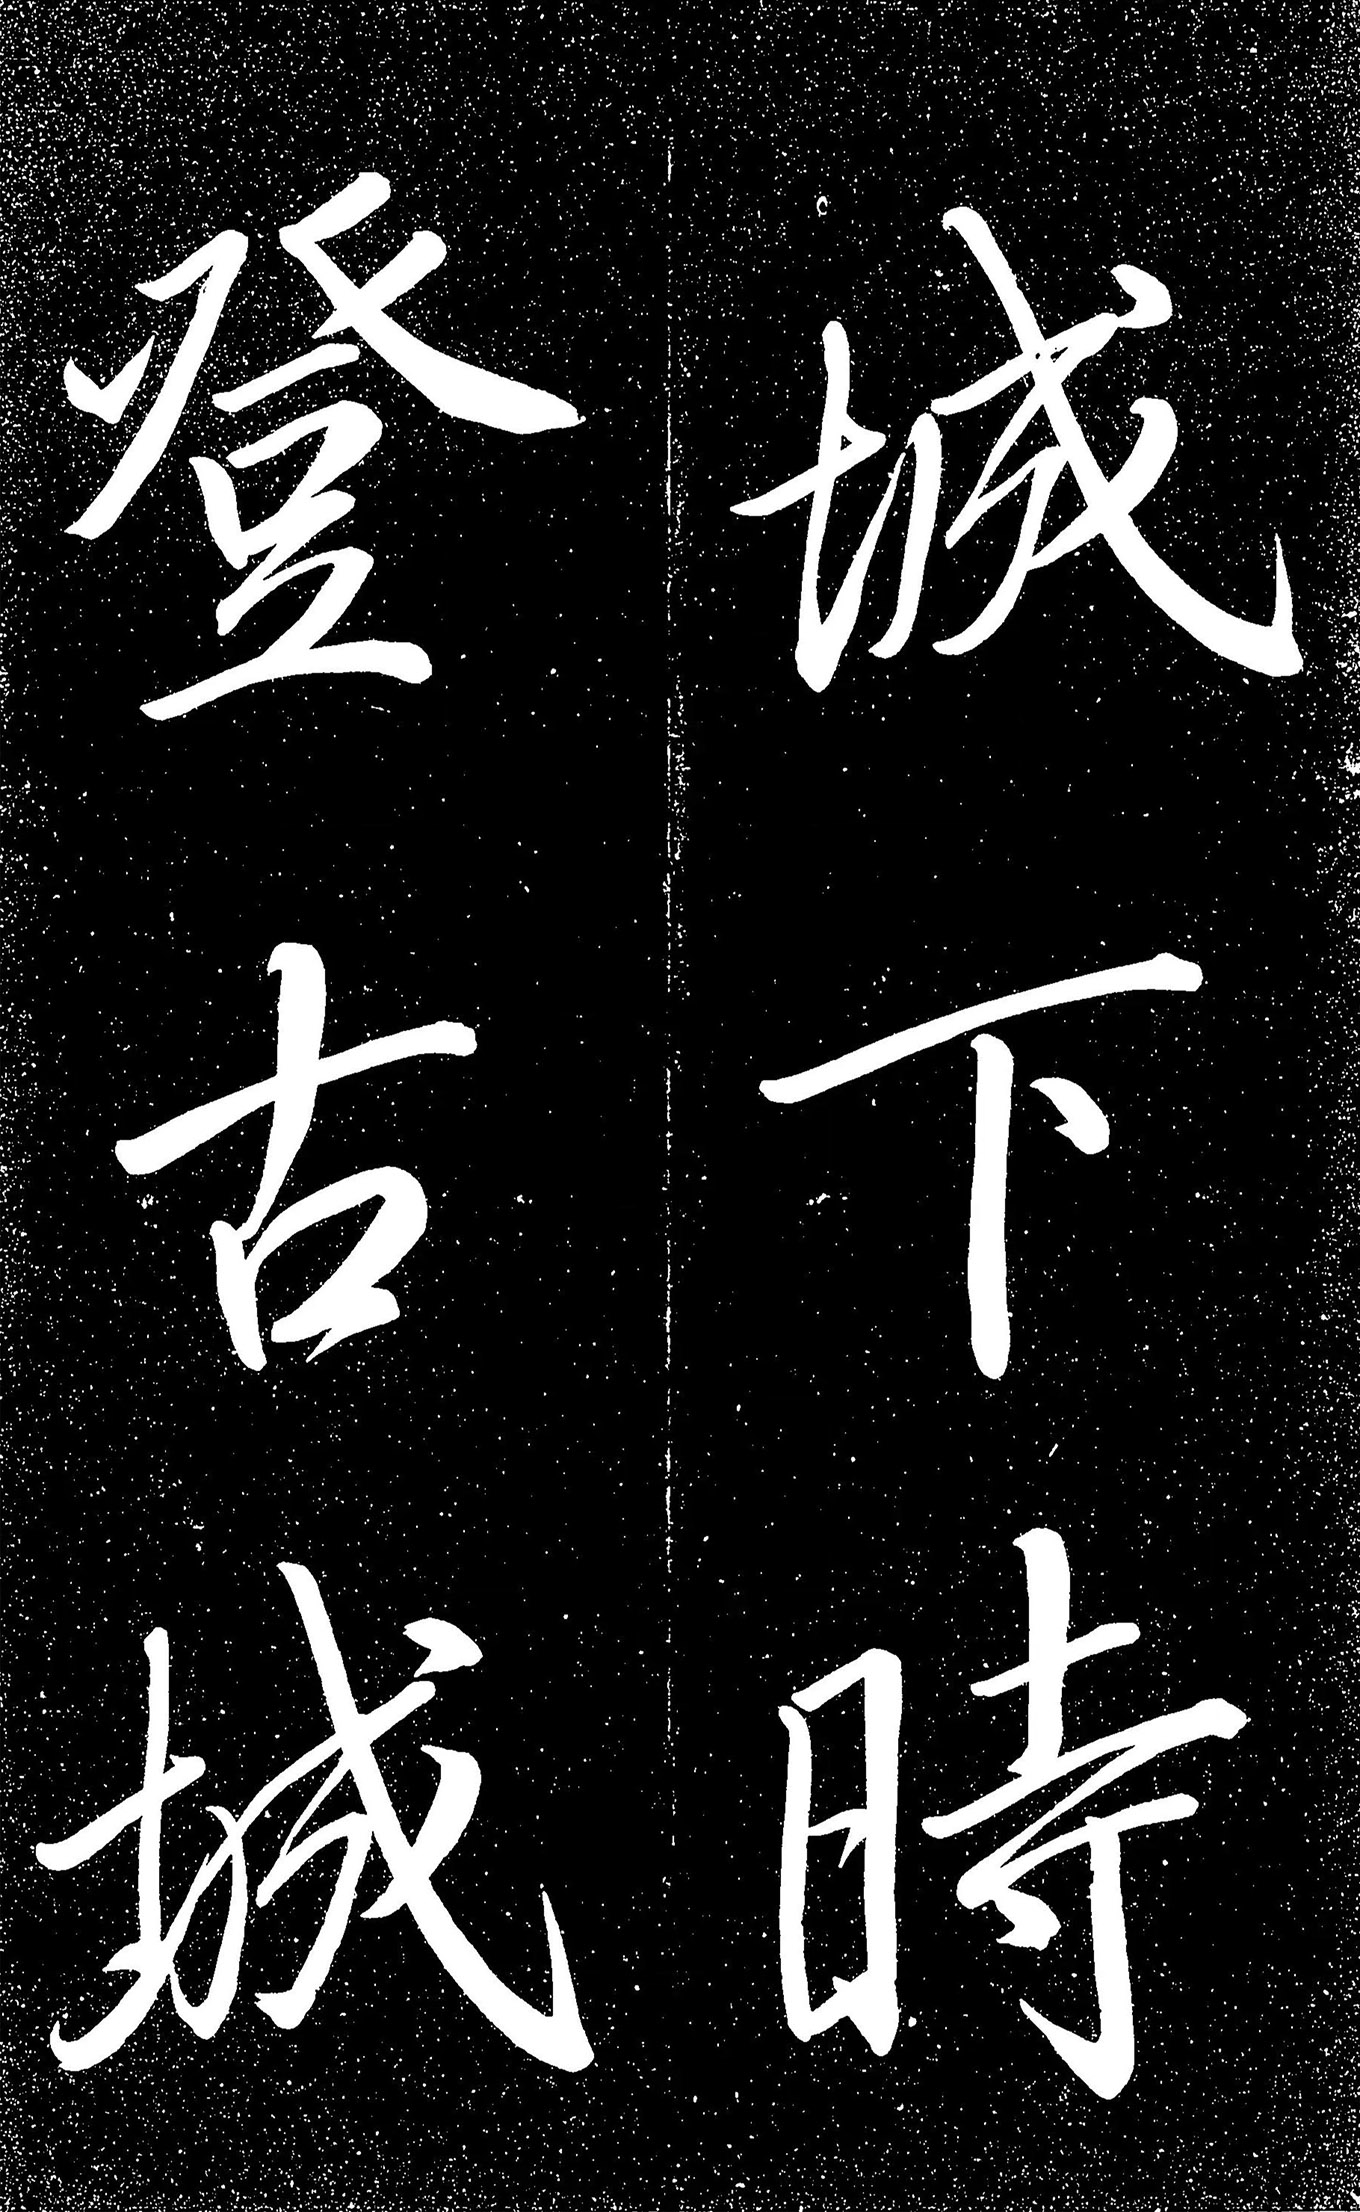 城下時
登古城